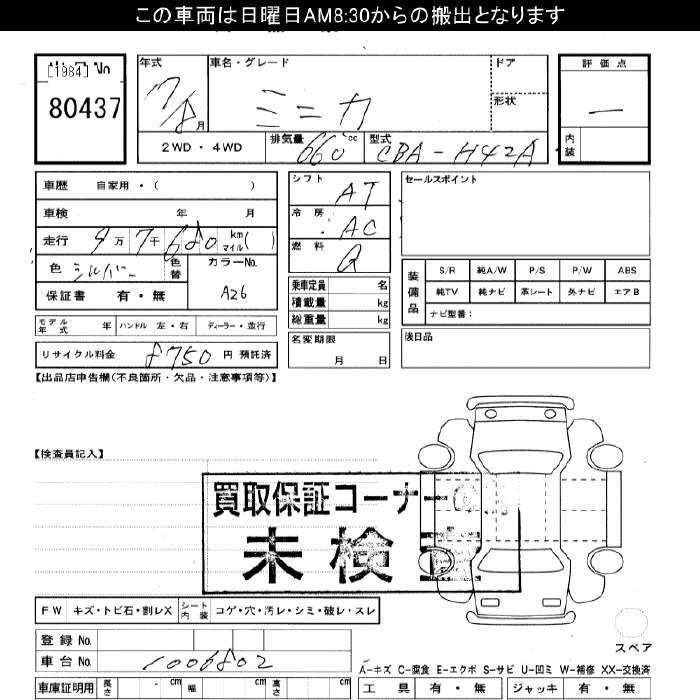 この車両は日曜日AM8:30からの搬出となります
[1984] No
80437
年式
17/8月
車名・グレード
ミニカ
ドア
形状
評価点
―
内装
2WD・4WD
排気量
660 cc
型式
CBA-H42A
車歴 自家用・( )
車検 年 月
走行 9万7千680 km マイル( )
色 シルバー 色替
カラーNo.
A26
保証書 有・無
モデル年式 年 ハンドル 左・右 ディーラー・並行
リサイクル料金 8750 円 預託済
シフト AT
冷房 AC
燃料 G
乗車定員 名
積載量 kg
総重量 kg
名変期限
月 日
セールスポイント
装備品
S/R 純A/W P/S P/W ABS
純TV 純ナビ 革シート 外ナビ エアB
ナビ型番:
後日品
【出品店申告欄(不良箇所・欠品・注意事項等)】
【検査員記入】
買取保証コーナー
未検
FW キズ・トビ石・割レX シート内装 コゲ・穴・汚レ・シミ・破レ・スレ
スペア
登録No.
車台No. 1006802
A-キズ C-腐食 E-エクボ S-サビ U-凹ミ W-補修 XX-交換済
車庫証明用 長さ cm 幅 cm 高さ cm
工具 有・無 ジャッキ 有・無